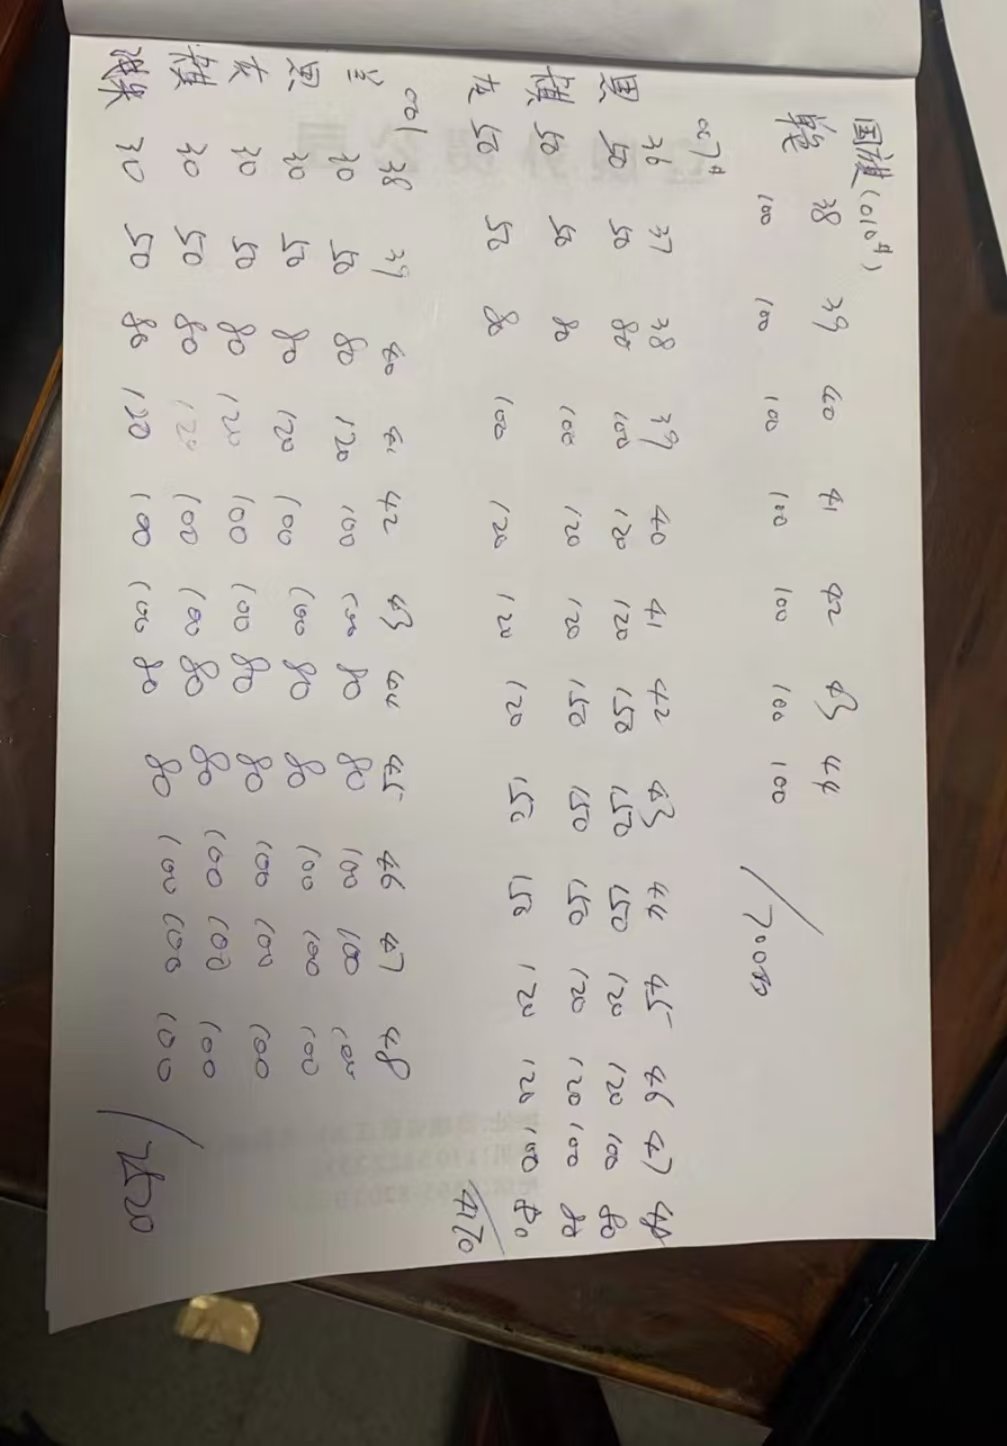 国旗(010#)
38 39 40 41 42 43 44
100 100 100 100 100 100 100 /700双
36 37 38 39 40 41 42 43 44 45 46 47 48
黑 50 50 80 100 120 120 150 150 150 120 120 100 80
棋 50 50 80 100 120 120 150 150 150 120 120 100 80
灰 50 50 80 100 120 120 120 150 150 120 120 100 80
4170
100
38 39 40 41 42 43 44 45 46 47 48
兰 30 50 80 120 100 100 80 80 100 100 100
黑 30 50 80 120 100 100 80 80 100 100 100
灰 30 50 80 120 100 100 80 80 100 100 100
棋 30 50 80 120 100 100 80 80 100 100 100
30 50 80 120 100 100 80 80 100 100 100